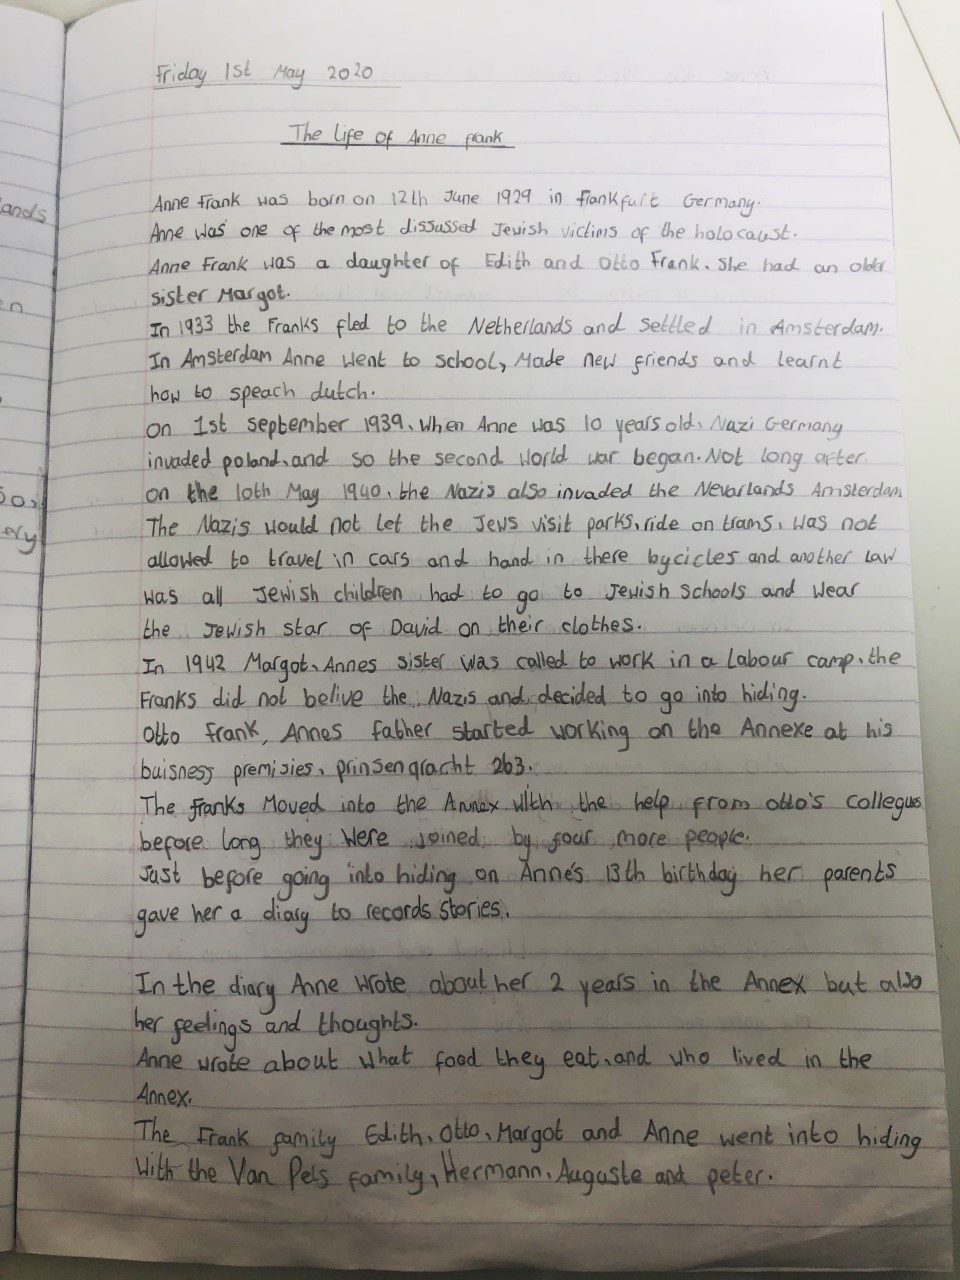 ands
en
so,
ery
Friday 1st May 2020
The life of Anne frank
Anne frank was born on 12th June 1929 in frankfurt Germany.
Anne was one of the most dissussed Jewish victims of the holocaust.
Anne Frank was a daughter of Edith and Otto Frank. She had an older
sister Margot.
In 1933 the Franks fled to the Netherlands and settled in Amsterdam.
In Amsterdam Anne went to school, Made new friends and learnt
how to speach dutch.
on 1st september 1939, when Anne was 10 years old, Nazi Germany
invaded poland, and so the second World war began. Not long after
on the 10th May 1940, the Nazis also invaded the Nevarlands Amsterdam
The Nazis would not let the Jews visit parks, ride on trams, was not
allowed to travel in cars and hand in there bycicles and another law
was all Jewish children had to go to Jewish schools and wear
the Jewish star of David on their clothes.
In 1942 Margot, Annes sister was called to work in a labour camp, the
Franks did not belive the Nazis and decided to go into hiding.
Otto frank, Annes father started working on the Annexe at his
buisness premisies, prinsengracht 263.
The franks Moved into the Annex with the help from otto's collegus
before long they were joined by four more people.
Just before going into hiding on Anne's 13th birthday her parents
gave her a diary to records stories.
In the diary Anne wrote about her 2 years in the Annex but also
her feelings and thoughts.
Anne wrote about what food they eat, and who lived in the
Annex.
The Frank family Edith, Otto, Margot and Anne went into hiding
with the Van Pels family, Hermann, Auguste and peter.